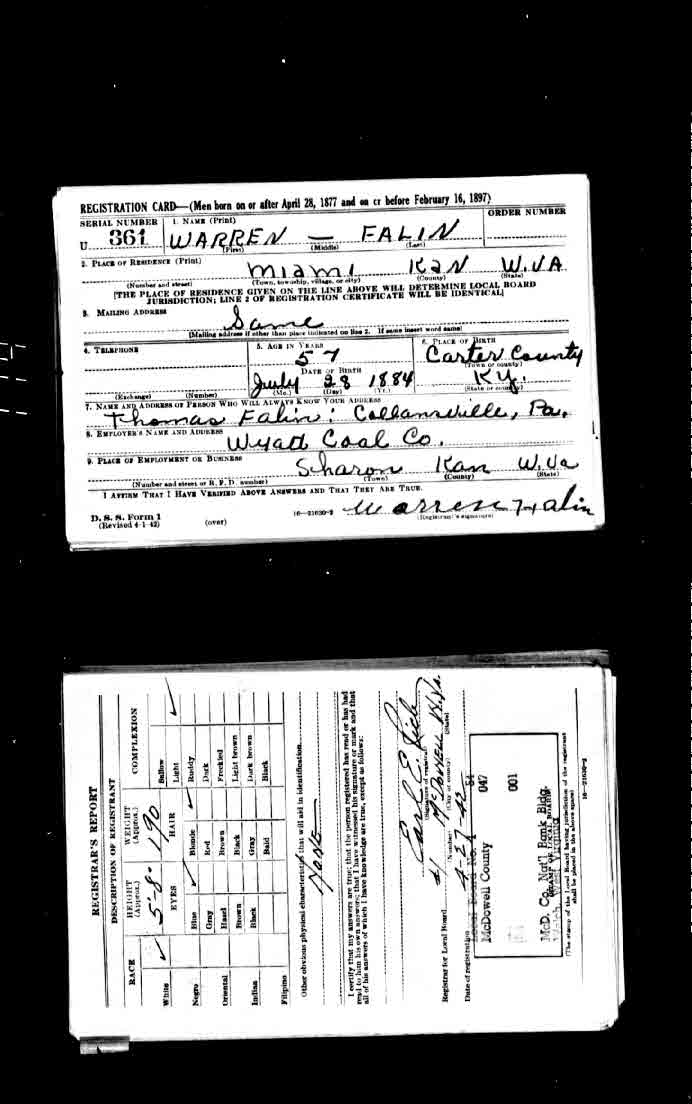 REGISTRATION CARD—(Men born on or after April 28, 1877 and on or before February 16, 1897)
SERIAL NUMBER 1. NAME (Print) ORDER NUMBER
U 361 WARREN — FALIN
(First) (Middle) (Last)
2. PLACE OF RESIDENCE (Print)
Miami KAN W.VA
(Number and street) (Town, township, village, or city) (County) (State)
[THE PLACE OF RESIDENCE GIVEN ON THE LINE ABOVE WILL DETERMINE LOCAL BOARD
JURISDICTION; LINE 2 OF REGISTRATION CERTIFICATE WILL BE IDENTICAL]
3. MAILING ADDRESS
Same
[Mailing address if other than place indicated on line 2. If same insert word same]
4. TELEPHONE 5. AGE IN YEARS 6. PLACE OF BIRTH
57 Carter County
DATE OF BIRTH (Town or county)
July 28 1884 Ky.
(Exchange) (Number) (Mo.) (Day) (Yr.) (State or country)
7. NAME AND ADDRESS OF PERSON WHO WILL ALWAYS KNOW YOUR ADDRESS
Thomas Falin: Collansville, Pa.
8. EMPLOYER'S NAME AND ADDRESS
Wyatt Coal Co.
9. PLACE OF EMPLOYMENT OR BUSINESS
Sharon Kan W.Va
(Number and street or R. F. D. number) (Town) (County) (State)
I AFFIRM THAT I HAVE VERIFIED ABOVE ANSWERS AND THAT THEY ARE TRUE.
D. S. S. Form 1
(Revised 4-1-42) (over) 16—21630-2 Warren Falin
(Registrant's signature)
REGISTRAR'S REPORT
DESCRIPTION OF REGISTRANT
RACE HEIGHT (Approx.) WEIGHT (Approx.) COMPLEXION
White ✓ 5'-8" 190 Sallow
EYES HAIR Light ✓
Negro Blue ✓ Blonde ✓ Ruddy
Gray Red Dark
Oriental Hazel Brown Freckled
Brown Black Light brown
Indian Black Gray Dark brown
Bald Black
Filipino
Other obvious physical characteristics that will aid in identification
NONE
I certify that my answers are true; that the person registered has read or has had
read to him his own answers; that I have witnessed his signature or mark and that
all of his answers of which I have knowledge are true, except as follows:
Carl E.
(Signature of registrar)
Registrar for Local Board #1 McDowell W.Va.
(Number) (City or county) (State)
Date of registration 4-27-42
Local Board No. 1 54
McDowell County 047
001
McD. Co. Nat'l Bank Bldg.
(STAMP OF LOCAL BOARD)
Welch, West Virginia
(The stamp of the Local Board having jurisdiction of the registrant
shall be placed in the above space)
16—21630-2